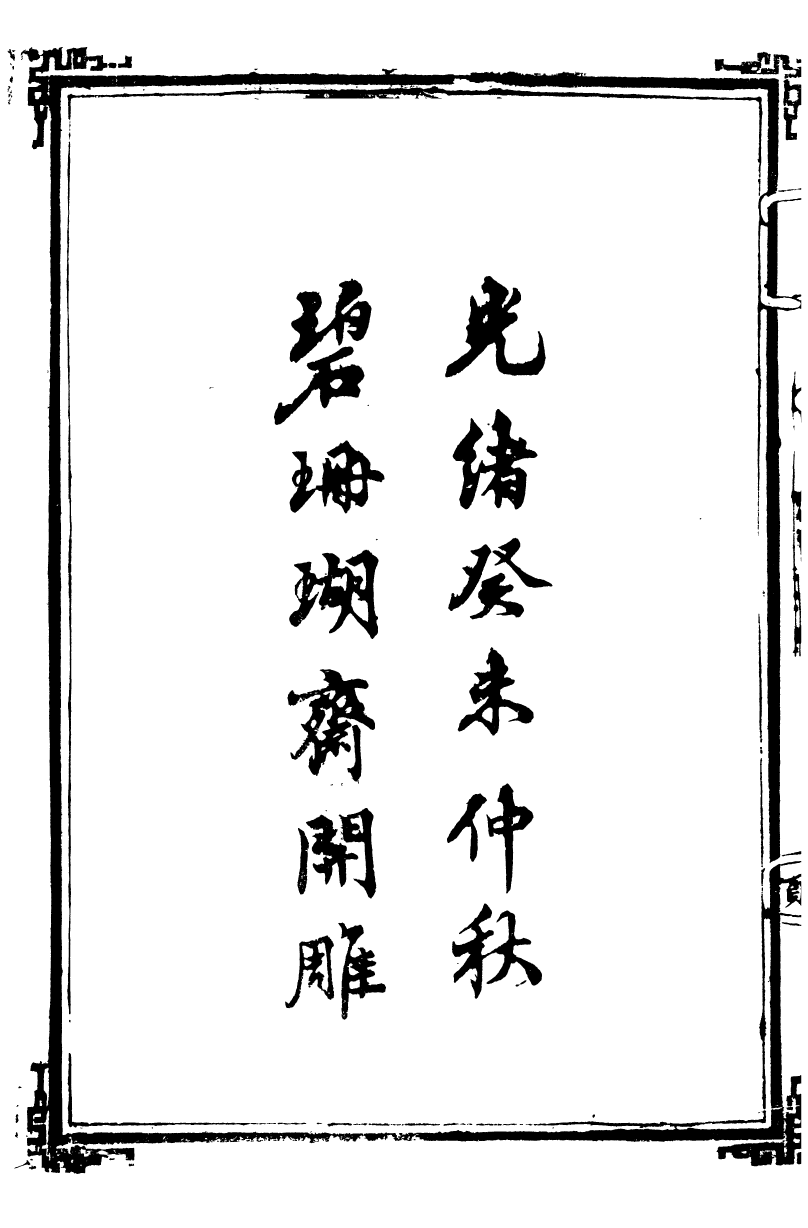 光緒癸未仲秋
碧珊瑚齋開雕